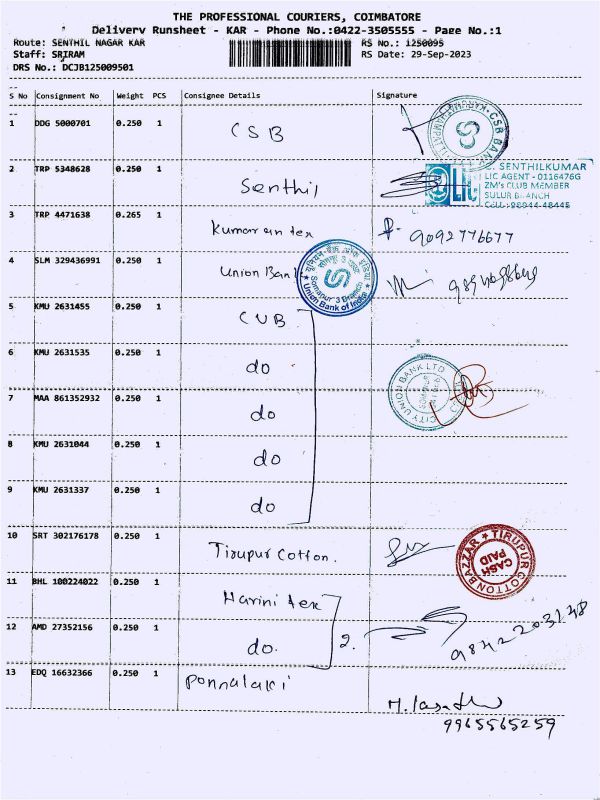 THE PROFESSIONAL COURIERS, COIMBATORE
Delivery Runsheet - KAR - Phone No.:0422-3505555 - Page No.:1
Route: SENTHIL NAGAR KAR RS No.: 1250095
Staff: SRIRAM RS Date: 29-Sep-2023
DRS No.: DCJB125009501
S No Consignment No Weight PCS Consignee Details Signature
1 DDG 5000701 0.250 1 CSB
CSB BANK
2 TRP 5348628 0.250 1 Senthil
LIC
SENTHILKUMAR
LIC AGENT - 0116476G
ZM's CLUB MEMBER
SULUR BRANCH
CELL: 98944-48445
3 TRP 4471638 0.265 1 Kumaran tex 9092776677
4 SLM 329436991 0.250 1 Union Bank
Somanur Branch
Union Bank of India
5 KMU 2631455 0.250 1 CUB
6 KMU 2631535 0.250 1 do
CITY UNION BANK LTD
7 MAA 861352932 0.250 1 do
8 KMU 2631044 0.250 1 do
9 KMU 2631337 0.250 1 do
10 SRT 302176178 0.250 1 Tirupur Cotton.
TIRUPUR COTTON BAZZAR
CASH
PAID
11 BHL 100224022 0.250 1 Harini tex
2.
12 AMD 27352156 0.250 1 do.
13 EDQ 16632366 0.250 1 Ponnalaki
9965565259